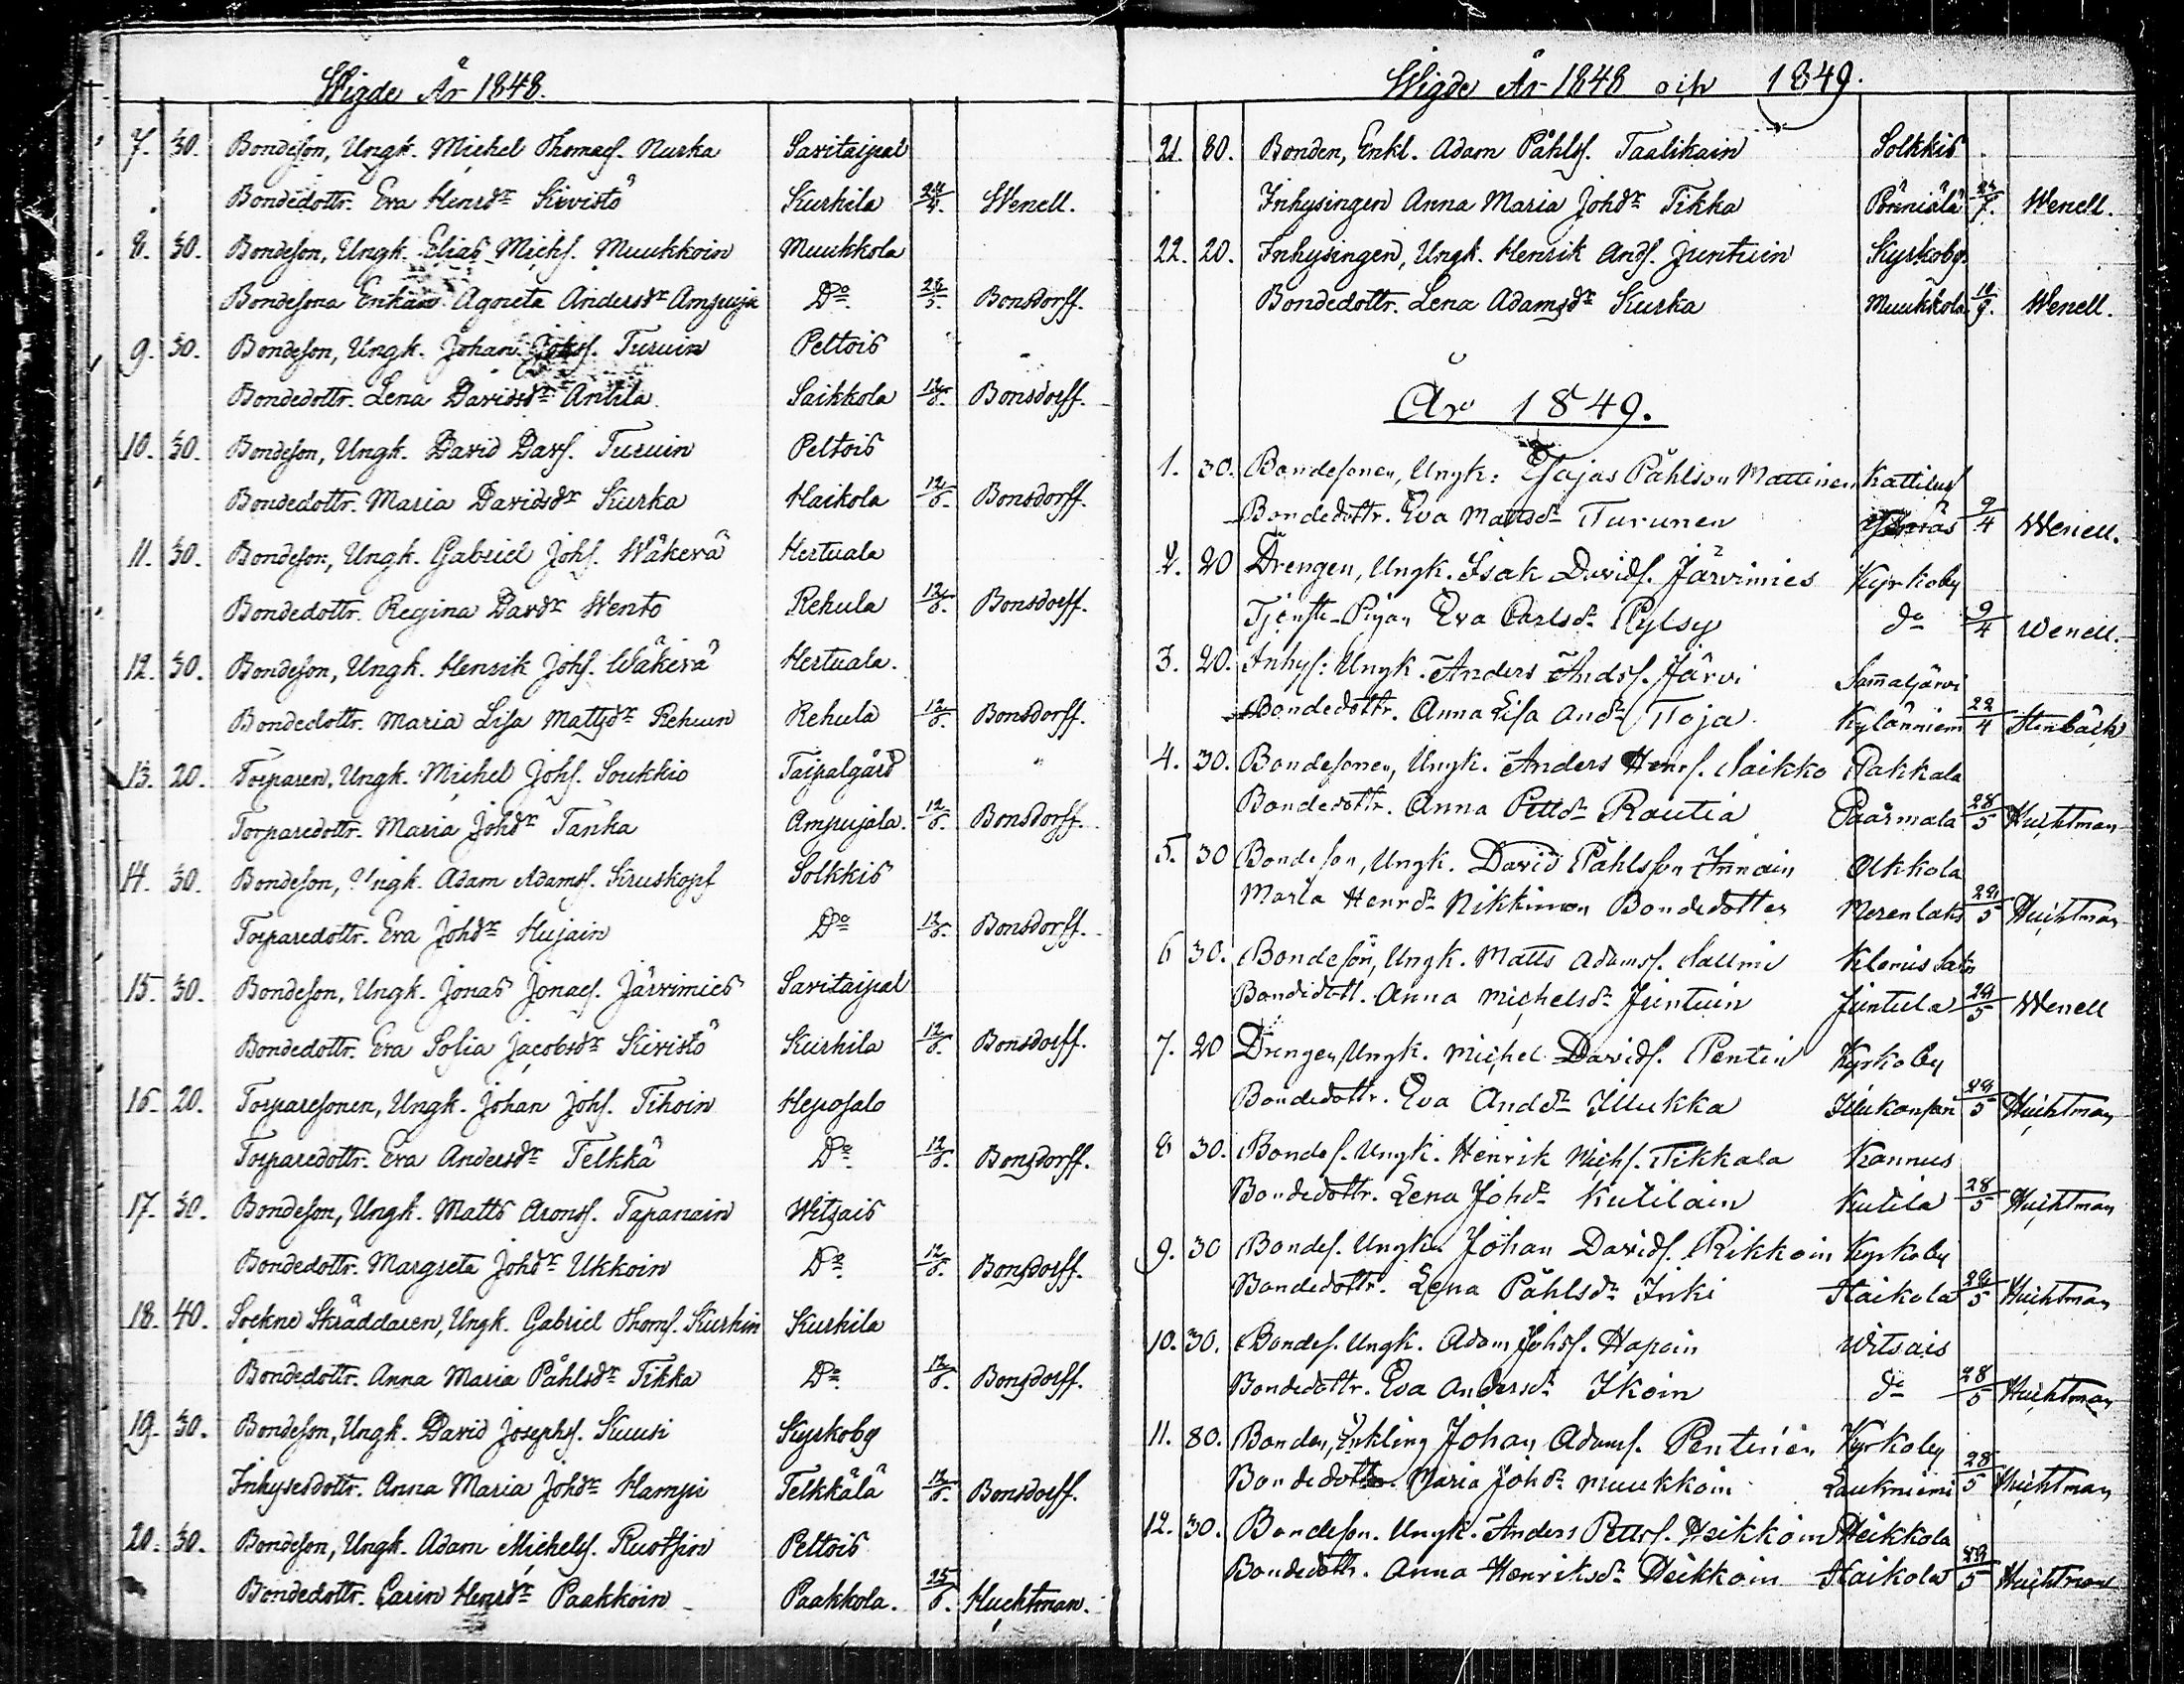 Wigde År 1848.
7. 30. Bondeson, Ungk. Michel Thomas. Nurka Savitaipal
Bondedottr. Eva Hensdr Kivistö Kurhila 24/4. Wenell.
8. 30. Bondeson, Ungk. Elias Michs. Muukkoin Muukkola
Bondesona Enkan Agneta Andersdr Ampuja Do 28/5. Bonsdorff.
9. 30. Bondeson, Ungk. Johan Johs. Turuin Peltois
Bondedottr. Lena Davidsdr Antila Saikkola 12/6. Bonsdorff.
10. 30. Bondeson, Ungk. David Davs. Turuin Peltois
Bondedottr. Maria Davidsdr Kurka Haikola 12/6. Bonsdorff.
11. 30. Bondeson, Ungk. Gabriel Johs. Wäkevä Hertuala
Bondedottr. Regina Davdr Wento Rehula 12/6. Bonsdorff.
12. 30. Bondeson, Ungk. Henrik Johs. Wäkevä Hertuala.
Bondedottr. Maria Lisa Mattsdr Rehuin Rehula 12/6. Bonsdorff.
13. 20. Torparen, Ungk. Michel Johs. Soukkio Taipalgård
Torparedottr. Maria Johdr Tanka Ampujala. 12/6. Bonsdorff.
14. 30. Bondeson, Ungk. Adam Adams. Kruskopf Solkkis
Torparedottr. Eva Johdr Hujain Do 12/6. Bonsdorff.
15. 30. Bondeson, Ungk. Jonas Jonas. Järvimies Savitaipal
Bondedottr. Eva Sofia Jacobsdr Kivistö Kurhila 12/6. Bonsdorff.
16. 20. Torparesonen, Ungk. Johan Johs. Tihoin Heposalo
Torparedottr. Eva Andersdr Telkkä Do 12/6. Bonsdorff.
17. 30. Bondeson, Ungk. Matts Arons. Tapanain Witsais
Bondedottr. Margreta Johdr Ukkoin Do 12/6. Bonsdorff.
18. 40. Sockne Skräddaren, Ungk. Gabriel Thoms. Kurhin Kurhila
Bondedottr. Anna Maria Påhlsdr Tikka Do 12/6. Bonsdorff.
19. 30. Bondeson, Ungk. David Josephs. Kuusi Kyrkoby
Inhysesdottr. Anna Maria Johdr Hampi Telkkälä 12/6. Bonsdorff.
20. 30. Bondeson, Ungk. Adam Michels. Ruotsin Peltois
Bondedottr. Carin Hensdr Paakkoin Paakkola. 25/6. Huchtman.
Wigde År 1848 och 1849.
21. 80. Bonden, Enkl. Adam Påhls. Taalikain Solkkis
Inhysingen Anna Maria Johdr Tikka Pönniälä 24/9. Wenell.
22. 20. Inhysingen, Ungk. Henrik Ands. Juntuin Kyrkoby.
Bondedottr. Lena Adamsdr Kurka Muukkola 10/9. Wenell.
År 1849.
1. 30. Bondesonen, Ungk: Esajas Påhlson Mattinen Kattilus
Bondedottr. Eva Mattsdr Turunen 9/4 Wenell.
2. 20 Drengen, Ungk. Isak Davids. Järvimies Kyrkoby
Tjenste-Pigan Eva Carlsdr Pylsy do 9/4 Wenell.
3. 20. Inhys: Ungk. Anders Ands. Järvi Sammaljärvi
Bondedottr. Anna Lisa Andr Toja Kylänniem 22/4 Stenbäck
4. 30. Bondesonen, Ungk. Anders Henrs. Saikko Pakkala
Bondedottr. Anna Pettdr Rautia Paarmala 28/5 Huchtman
5. 30 Bondeson, Ungk. David Påhlsson Innain Olkkola
Maria Henrdr Nikkinen Bondedotter Merenlaks 28/5 Huchtman
6 30. Bondeson, Ungk. Matts Adams. Sallmi
Bondedott. Anna Michelsdr Juntuin Juntula 28/5 Wenell
7. 20 Drengen, Ungk. Michel Davids. Pentin Kyrkoby
Bondedottr. Eva Anddr Illukka 28/5 Huchtman
8 30. Bondes. Ungk. Henrik Michs. Tikkala Kannus
Bondedottr. Lena Johdr Kutilain Kutila 28/5 Huchtman
9. 30 Bondes. Ungk. Johan Davids. Rikkoin Kyrkoby
Bondedottr. Lena Påhlsdr Inki Haikola 28/5 Huchtman
10. 30. Bondes. Ungk. Adam Johs. Hapoin Witsais
Bondedottr. Eva Andersdr Ikoin do 28/5 Huchtman
11. 80. Bonden, Enkling Johan Adams. Pentinen Kyrkoby
Bondedottr. Maria Johdr Muukkoin Laukniemi 28/5 Huchtman
12. 30. Bondeson. Ungk. Anders Petters. Heikkoin Heikkola
Bondedottr. Anna Henriksdr Heikkoin Haikola 28/5 Huchtman